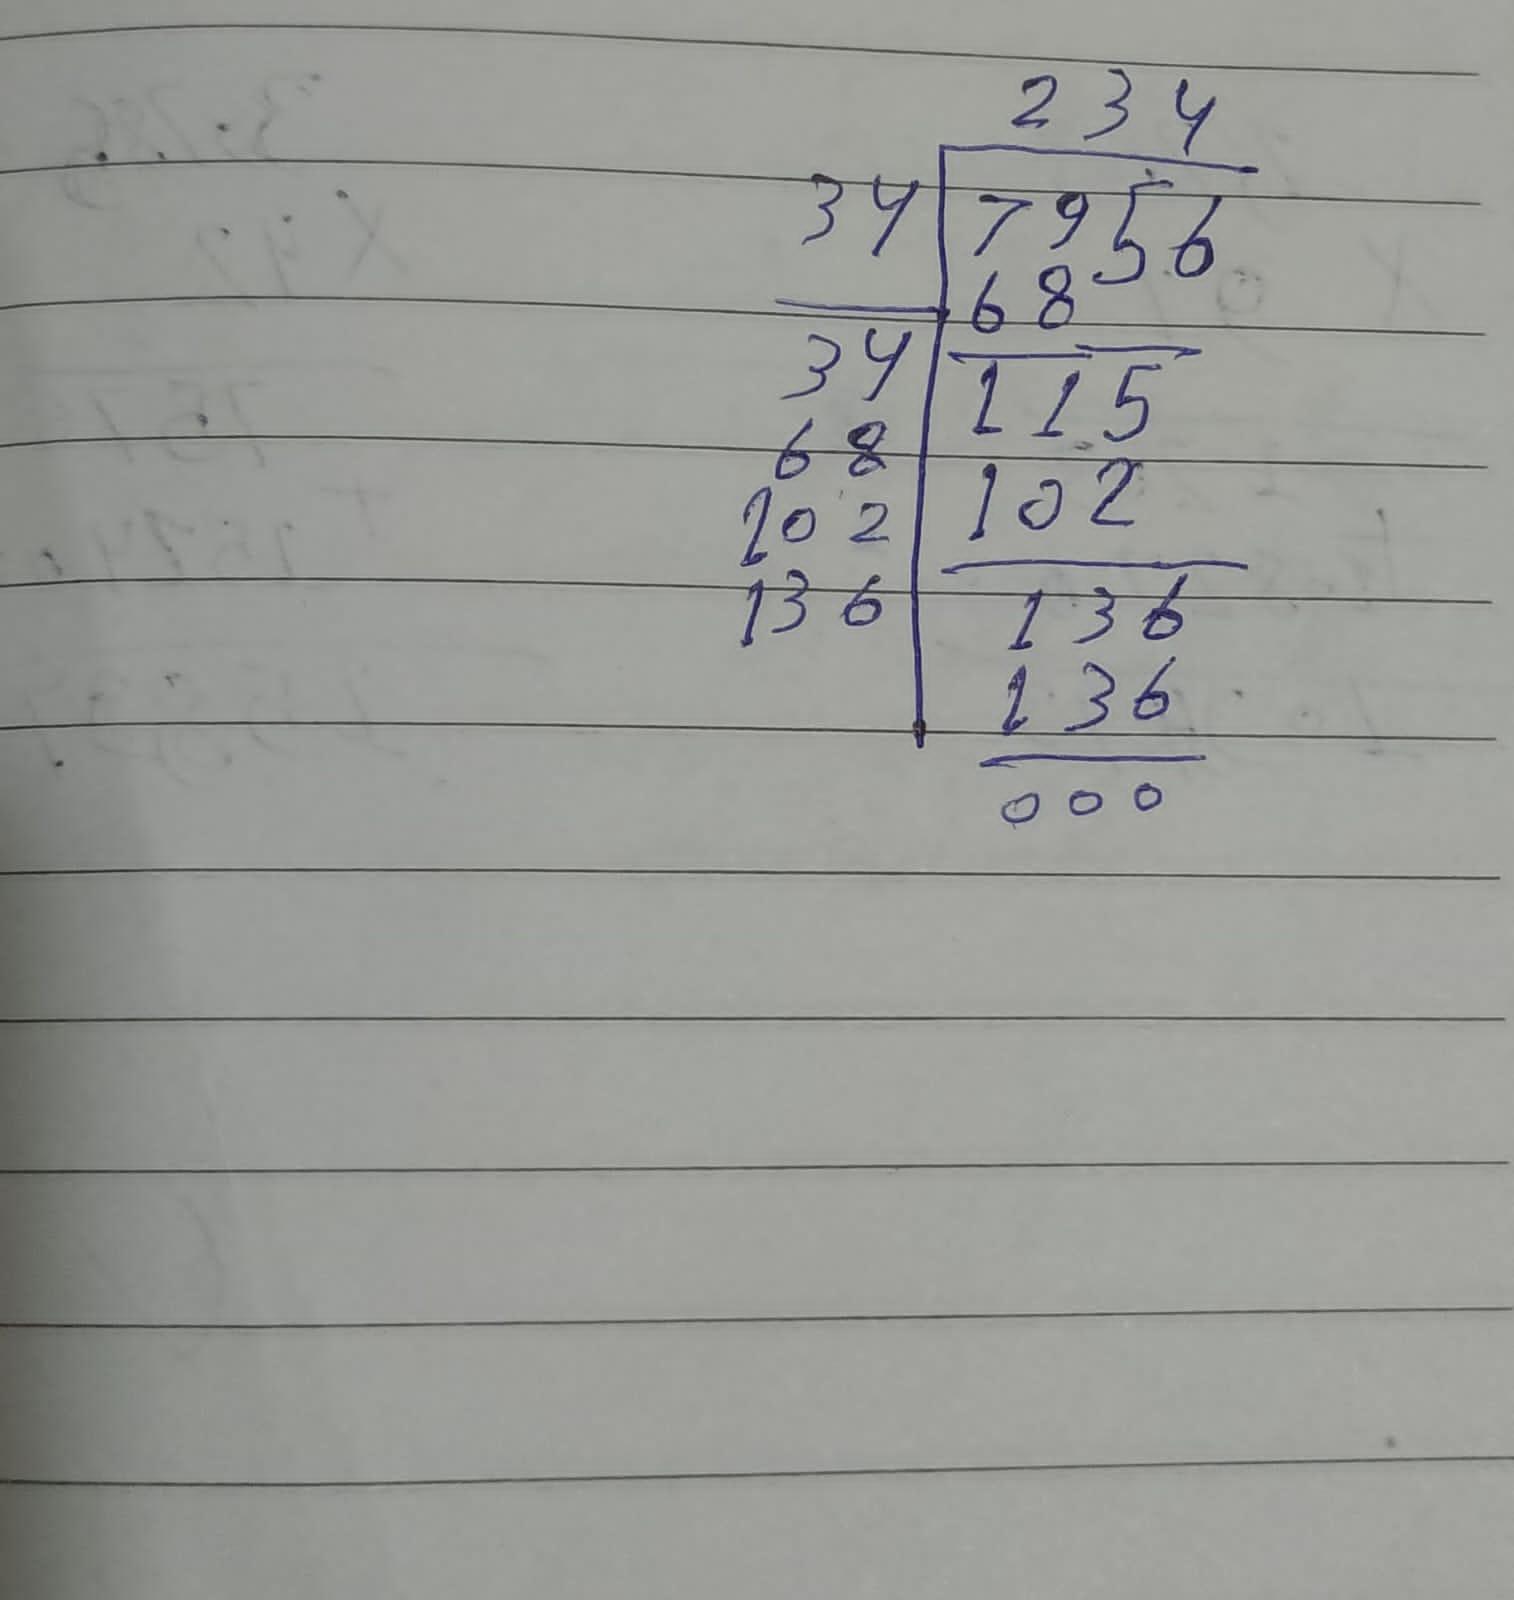 234
34 7956
68
34 115
68
102 102
136 136
136
000